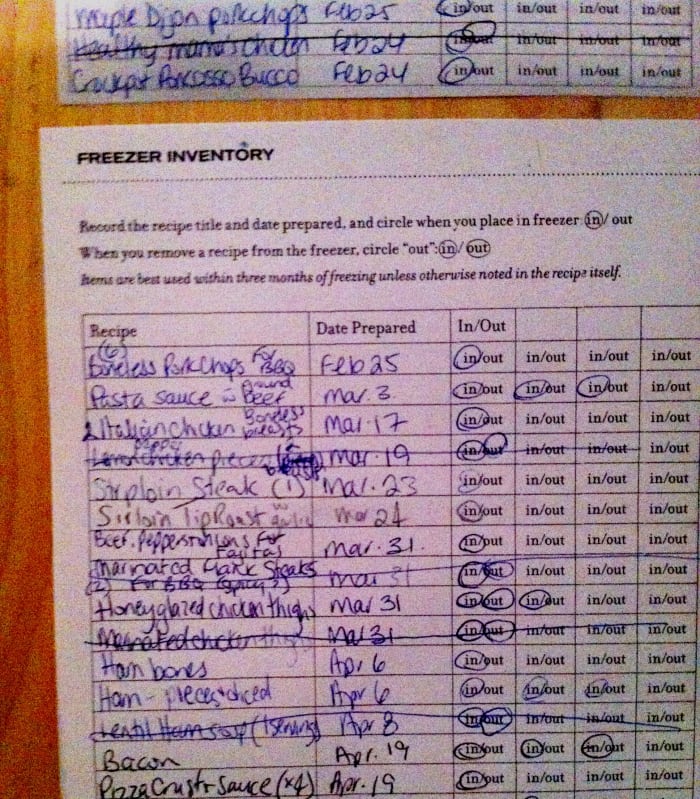 Maple Dijon porkchops Feb 25 in/out in/out in/out in/out
Healthy mama's chicken Feb 24 in/out in/out in/out in/out
Crockpot Porcosso Bucco Feb 24 in/out in/out in/out in/out
FREEZER INVENTORY
Record the recipe title and date prepared, and circle when you place in freezer in / out
When you remove a recipe from the freezer, circle "out": in / out
Items are best used within three months of freezing unless otherwise noted in the recipe itself.
Recipe Date Prepared In/Out
(6) Boneless Pork Chops for BBQ Feb 25 in/out in/out in/out in/out
Pasta sauce w Ground Beef Mar. 3 in/out in/out in/out in/out
2 Italian chicken Boneless breasts Mar. 17 in/out in/out in/out in/out
Lemon pepper chicken pieces Mar. 19 in/out in/out in/out in/out
Sirploin Steak (1) Mar. 23 in/out in/out in/out in/out
Sirloin Tip Roast Mar 24 in/out in/out in/out in/out
Beef, Peppers + onions for Fajitas Mar. 31. in/out in/out in/out in/out
Marinated Flank Steaks (2) for BBQ (spicy) Mar 31 in/out in/out in/out in/out
Honey glazed chicken thighs Mar 31 in/out in/out in/out in/out
Marinated chicken thighs Mar 31 in/out in/out in/out in/out
Ham bones Apr 6 in/out in/out in/out in/out
Ham - pieces + diced Apr 6 in/out in/out in/out in/out
Lentil Ham soup (1 serving) Apr 8 in/out in/out in/out in/out
Bacon Apr. 19 in/out in/out in/out in/out
Pizza Crust + Sauce (x4) Apr. 19 in/out in/out in/out in/out